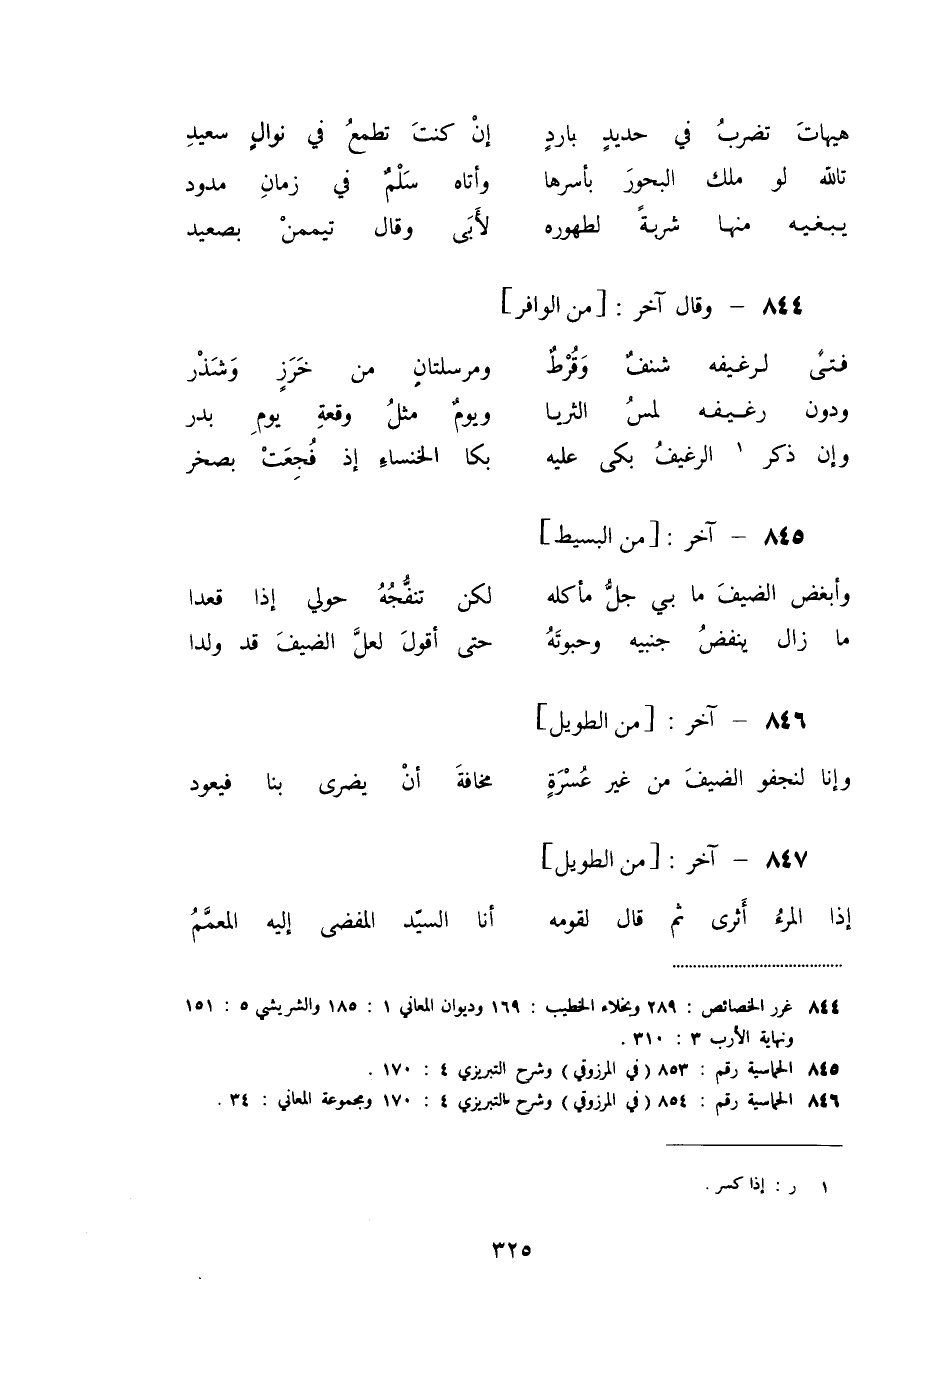 هيهاتَ تضربُ في حديدٍ باردٍ إنْ كنتَ تطمعُ في نوالِ سعيدِ
تالله لو ملك البحورَ بأسرها وأتاه سَلْمٌ في زمانِ مدود
يبغيه منها شربةً لطهوره لأَبَى وقال تيممنْ بصعيد
٨٤٤ – وقال آخر : [من الوافر]
فتىً لرغيفه شنفٌ وَقُرْطٌ ومرسلتانِ من خَرَزٍ وَشَذْر
ودون رغيفه لمسُ الثريا ويومٌ مثلُ وقعةِ يومِ بدر
وإن ذكر ١ الرغيفُ بكى عليه بكا الخنساءِ إذ فُجِعَتْ بصخر
٨٤٥ – آخر : [من البسيط]
وأبغض الضيفَ ما بي جلُّ مأكله لكن تنفُّجُهُ حولي إذا قعدا
ما زال ينفضُ جنبيه وحبوتَهُ حتى أقولَ لعلَّ الضيفَ قد ولدا
٨٤٦ – آخر : [من الطويل]
وإنا لنجفو الضيفَ من غير عُسْرَةٍ مخافةَ أنْ يضرى بنا فيعود
٨٤٧ – آخر : [من الطويل]
إذا المرءُ أَثرى ثم قال لقومه أنا السيّد المفضى إليه المعمَّمُ
٨٤٤ غرر الخصائص : ٢٨٩ وبخلاء الخطيب : ١٦٩ وديوان المعاني ١ : ١٨٥ والشريشي ٥ : ١٥١
ونهاية الأرب ٣ : ٣١٠ .
٨٤٥ الحماسية رقم : ٨٥٣ (في المرزوقي) وشرح التبريزي ٤ : ١٧٠ .
٨٤٦ الحماسية رقم : ٨٥٤ (في المرزوقي) وشرح التبريزي ٤ : ١٧٠ ومجموعة المعاني : ٣٤ .
١ ر : إذا كسر .
٣٢٥